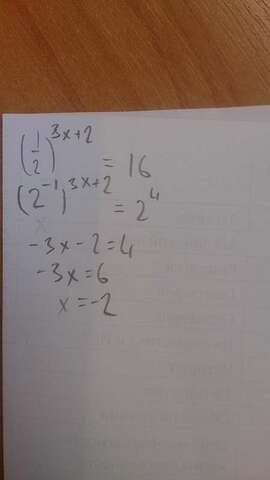 (1/2)^{3x+2} = 16
(2^{-1})^{3x+2} = 2^4
-3x-2=4
-3x=6
x=-2